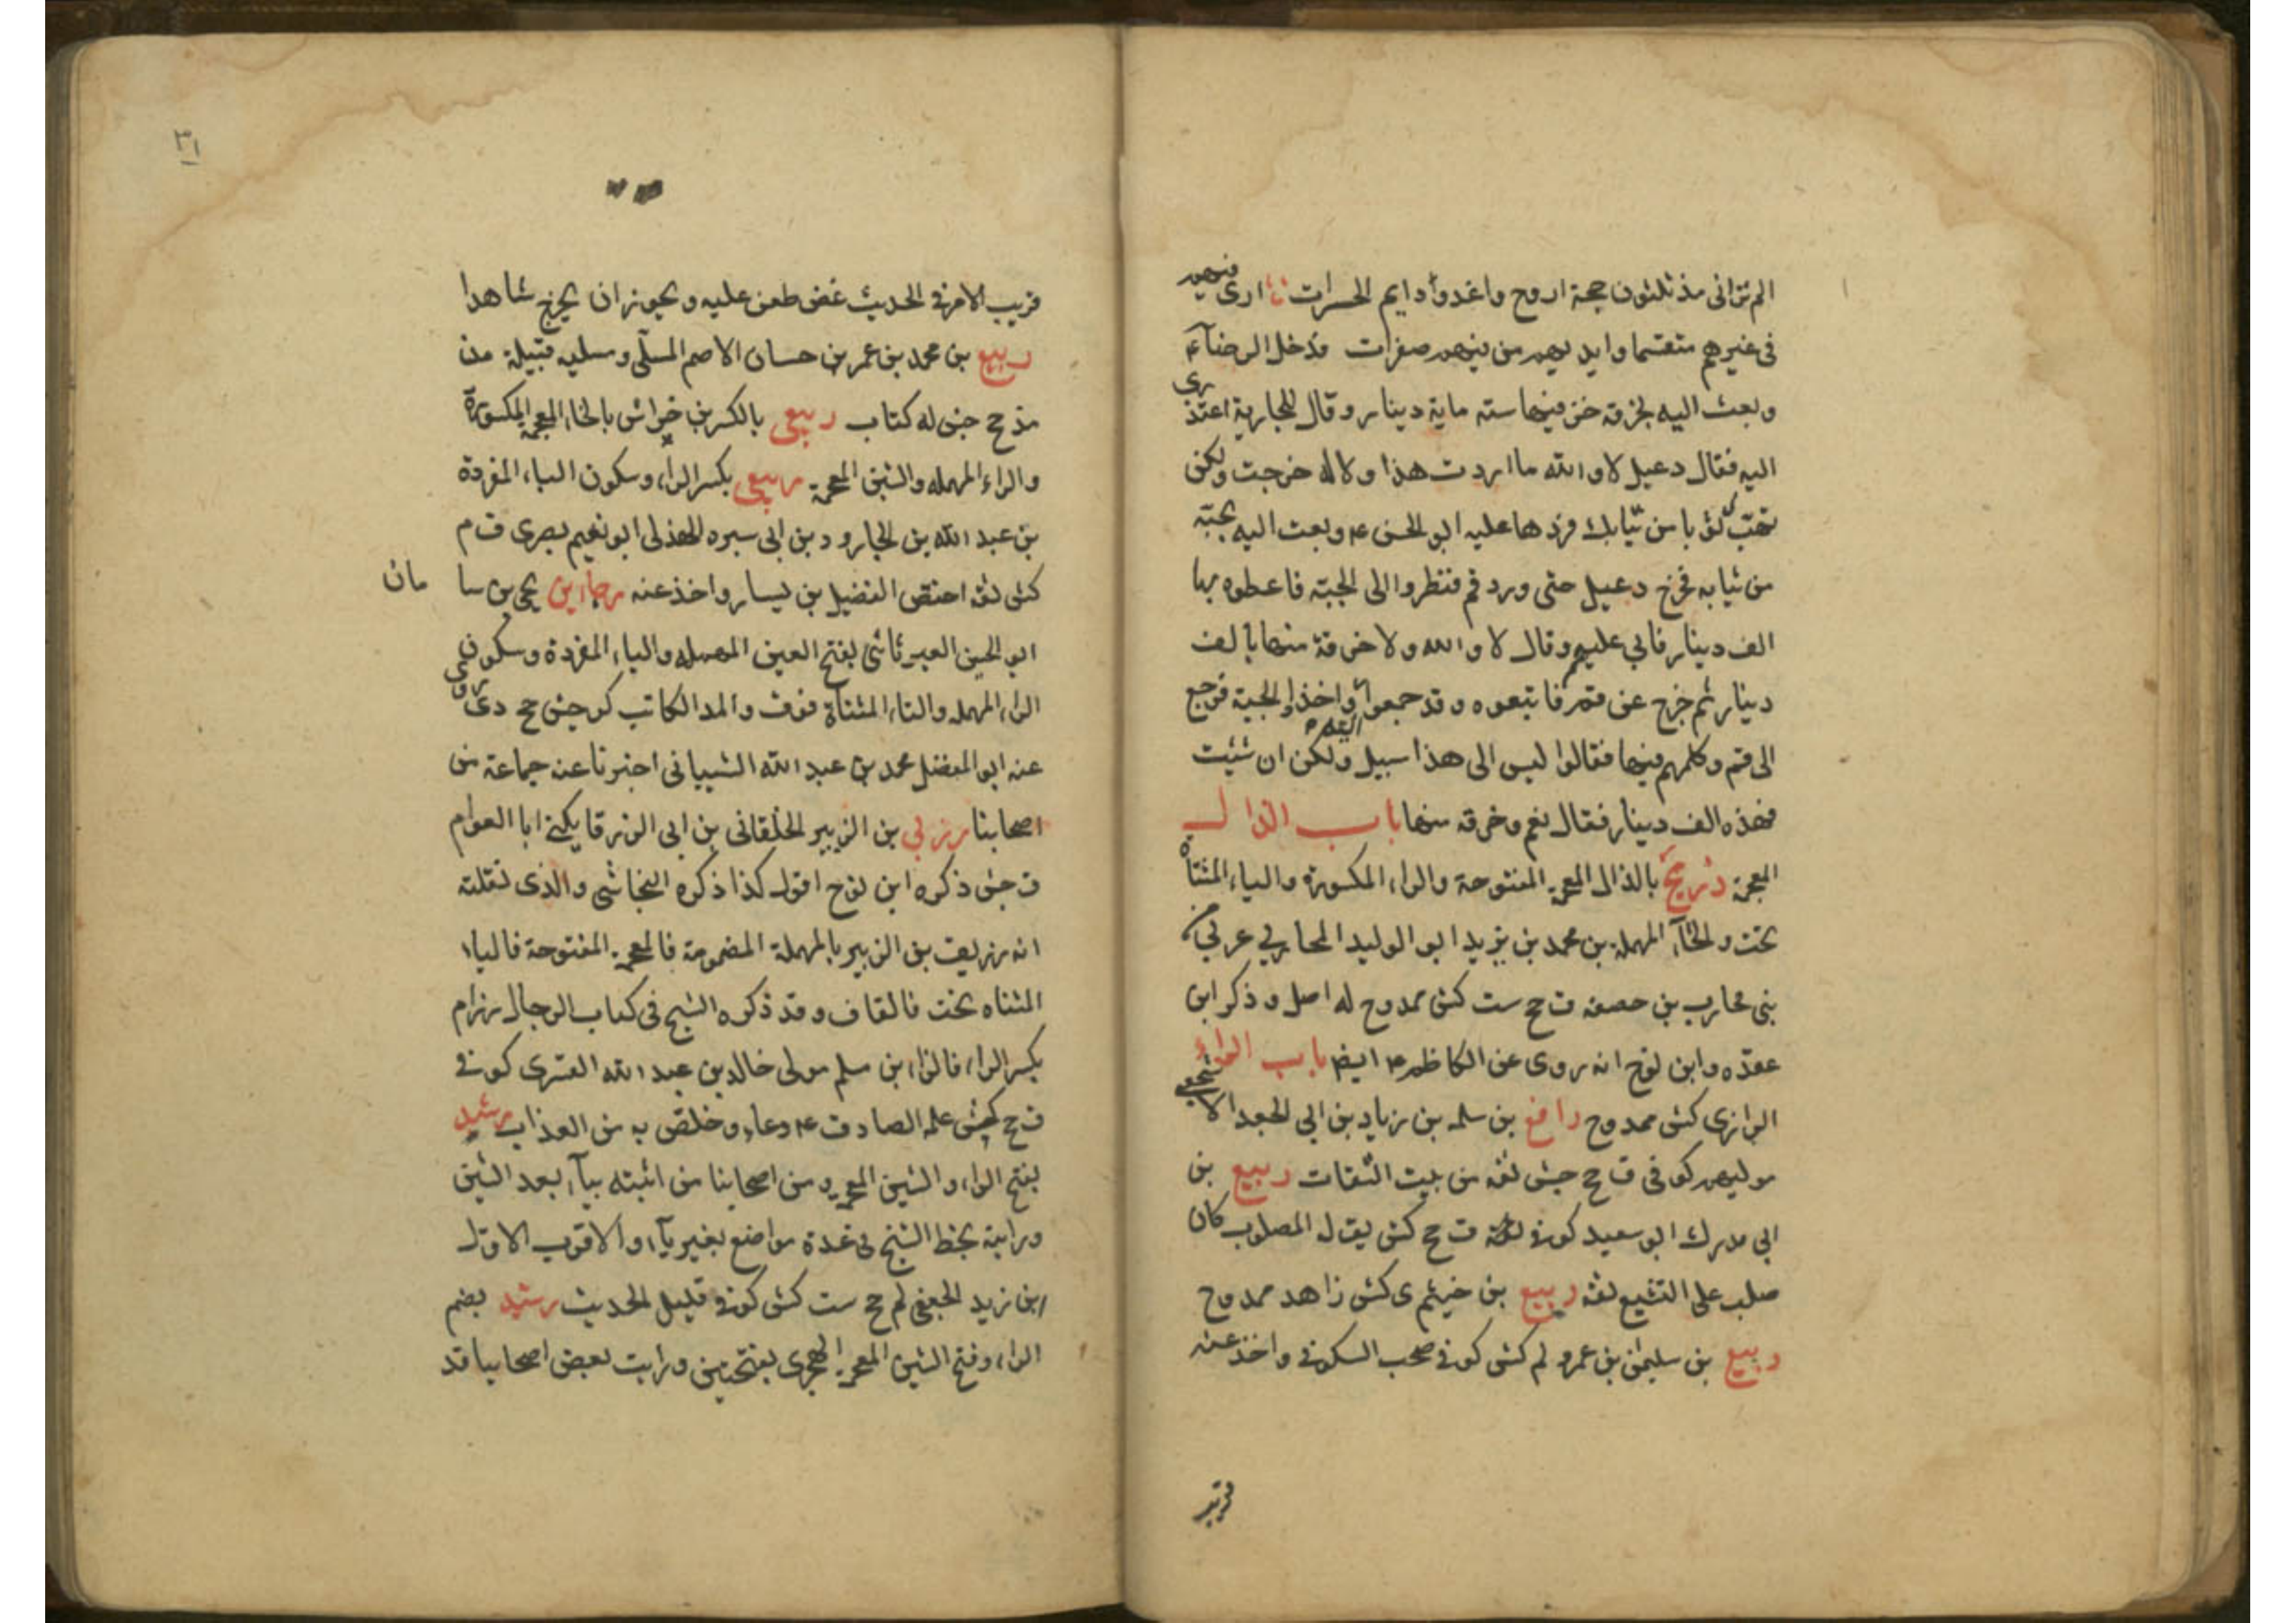 الم تراني مذ ثلثون حجة اروح واغدوا دايم الحسرات ارى فيئهم
في غيرهم متقسما وايديهم من فيئهم صفرات فدخل الرضاء ع
وبعث اليه بخرقة خز فيها ستة ماية دينار وقال للجارية اعتذري
اليه فقال دعبل لا والله ما اردت هذا ولا له خرجت ولكن
ثوبا من ثيابك فردها عليه ابو الحسن ع وبعث اليه بجبة
من ثيابه فخرج دعبل حتى ورد قم فنظروا الى الجبة فاعطوه بها
الف دينار فابي عليهم وقال لا والله ولا خرقة منها بالف
دينار ثم خرج عن قم فاتبعوه وقد جمعوا واخذوا الجبة فرجع
الى قم وكلمهم فيها فقالوا ليس الى هذا سبيل ولكن ان شئت
فهذه الف دينار فقال نعم وخرقة منها باب الذال
المعجمة ذريح بالذال المعجمة المفتوحة والراء المكسورة والياء المثناة
تحت والحاء المهملة بن محمد بن يزيد ابو الوليد المحاربي عربي من
بني محارب بن حصفه ق ح ست كش ممدوح له اصل وذكر ابن
عقده وابن نوح انه روى عن الكاظم ع ايضا باب الراء
الرازي كش ممدوح رافع بن سلمه بن زياد بن ابي الجعد الاشجعي
موليهم كوفي ق ح جش ثقه من بيت الثقات ربيع بن
ابي مدرك ابو سعيد كوفي ثقة ق ح كش يقال له المصلوب كان
صلب على التشيع ثقه ربيع بن خيثم ى كش زاهد ممدوح
ربيع بن سليمن بن عمرو لم كش كوفي صحب السكوني واخذ عنه
قريب
٣١
قريب الامر في الحديث غض طعن عليه ويجوز ان يخرج شاهدا
ربيع بن محمد بن عمر بن حسان الاصم المسلي ومسليه قبيلة من
مذحج جش له كتاب ربعي بالكسر بن خراش بالخاء المعجمة المكسورة
والراء المهمله والشين المعجمة ربعي بكسر الراء وسكون الباء المفردة
بن عبد الله بن الجارود بن ابي سبره الهذلي ابو نعيم بصرى ق م
كش ثقه اختص الفضيل بن يسار واخذ عنه رجا بن يحيى بن سا مان
ابو الحسن العبرتائي بفتح العين المهمله والباء المفردة وسكون
الراء المهمله والتاء المثناة فوق والمد الكاتب كر جش ح دى روى
عنه ابو المفضل محمد بن عبد الله الشيباني اخبرنا عنه جماعة من
اصحابنا رزبي بن الزبير الخلقاني بن ابي الزرقا يكنى ابا العوام
ق جش ذكره ابن نوح اقول كذا ذكره النجاشي والذى نقلته
انه زريق بن الزبير بالمهملة المضمومة فالمعجمة المفتوحة فالياء
المثناه تحت فالقاف وقد ذكره الشيخ في كتاب الرجال رزام
بكسر الراء فالزاء بن مسلم مولى خالد بن عبد الله القسرى كوفي
ق ح كش علمه الصادق ع دعاء وخلص به من العذاب رشيد
بفتح الراء والشين المعجمة ومن اصحابنا من اثبته بياء بعد الشين
ورايته بخط الشيخ في عدة مواضع بغير ياء والاقرب الاول
ابن زيد الجعفي لم ح ست كش كوفي قليل الحديث رشيد بضم
الراء وفتح الشين المعجمة الهجرى بفتحتين ورايت بعض اصحابنا قد